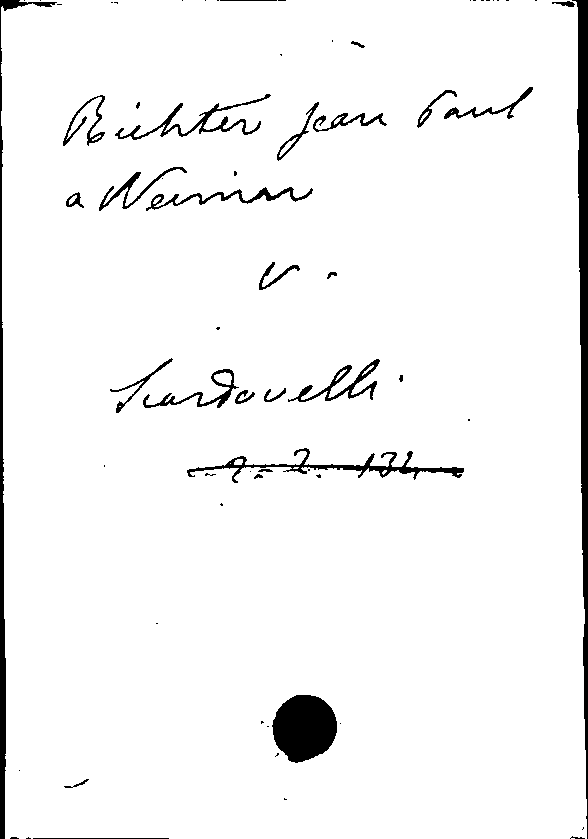 Richter Jean Paul
a Weimar
v.
Scardovelli